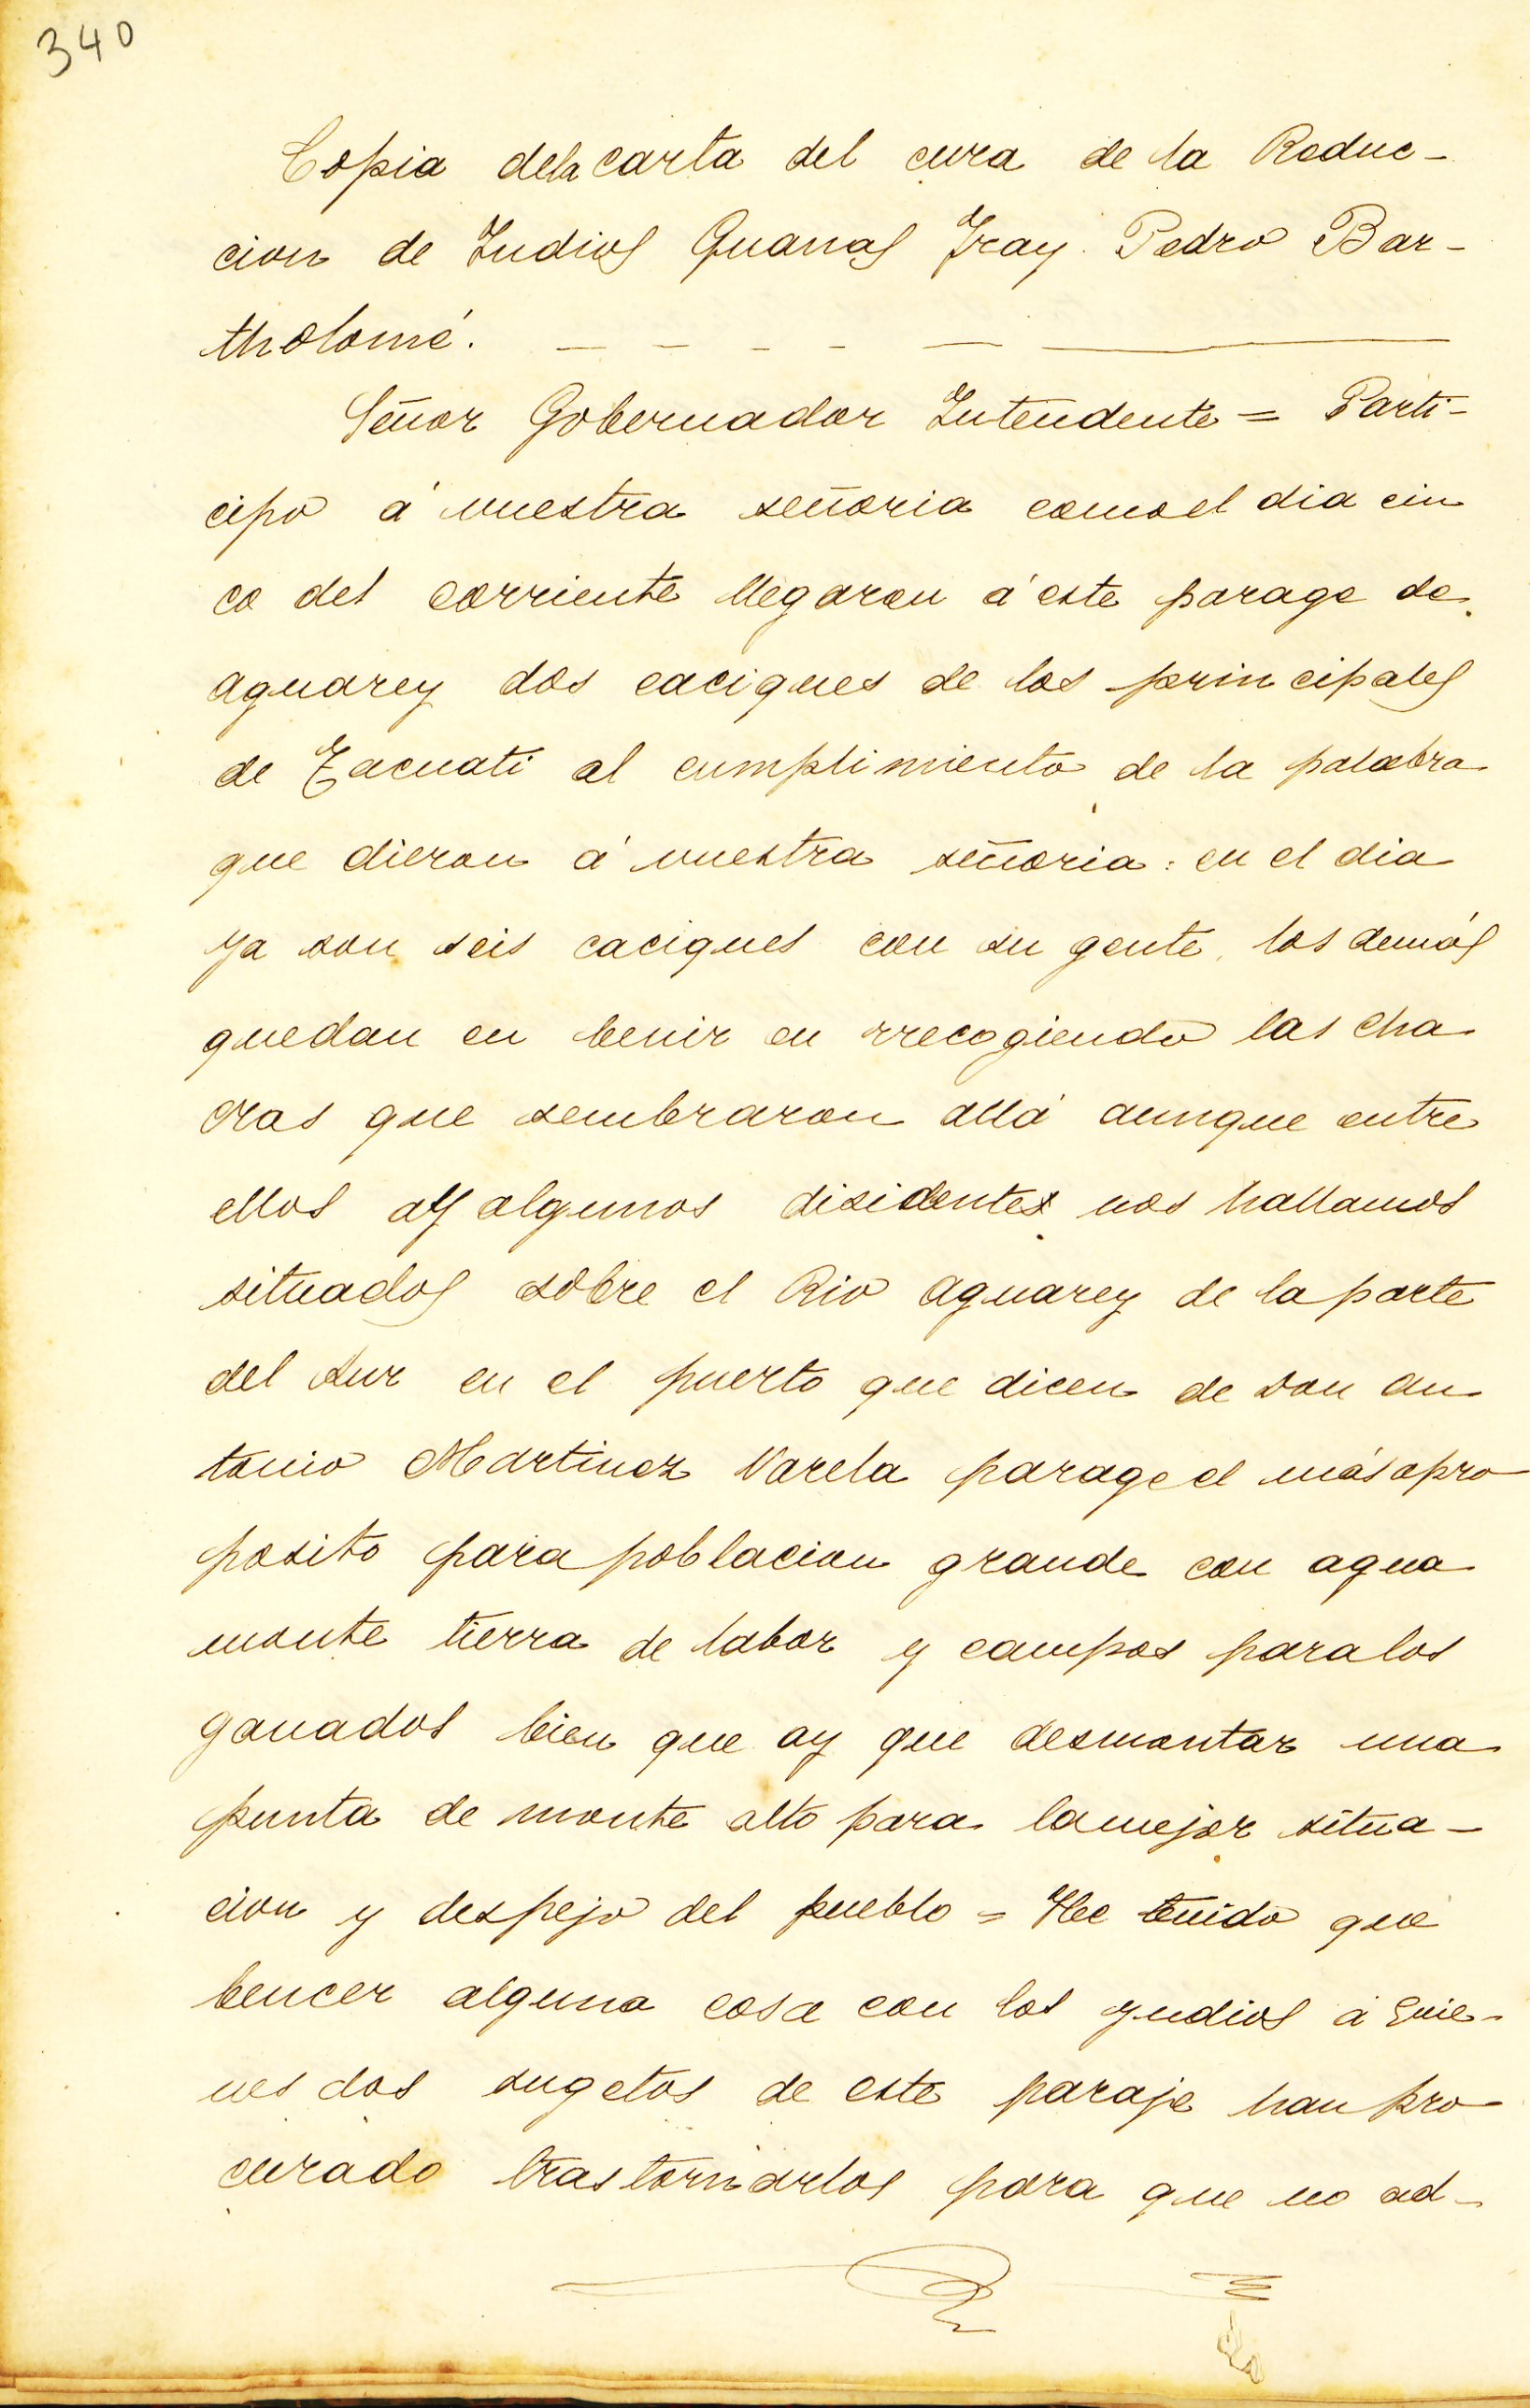 340
Copia dela carta del cura de la Reduc-
cion de Indios Guanas Fray Pedro Bar-
tholomé.
Señor Gobernador Intendente = Parti-
cipo á vuestra señoria como el dia cin
co del corriente llegaron á este parage de
aguarey dos caciques de los principales
de Tacuati al cumplimiento de la palabra
que dieron á vuestra señoria: en el dia
ya son seis caciques con su gente, los demás
quedan en benir en rrecogiendo las cha
cras que sembraron allá aunque entre
ellos ay algunos disidentes nos hallamos
situados sobre el Rio aguarey de la parte
del sur en el puerto que dicen de Don an
tonio Martinez Varela parage el más apro
posito para poblacion grande con agua
monte tierra de labor y campos para los
ganados bien que ay que desmontar una
punta de monte alto para la mejor situa-
cion y despejo del pueblo = He tenido que
bencer alguna cosa con los yndios á quie-
nes dos sugetos de este paraje han pro
curado trastornarlos para que no ad-